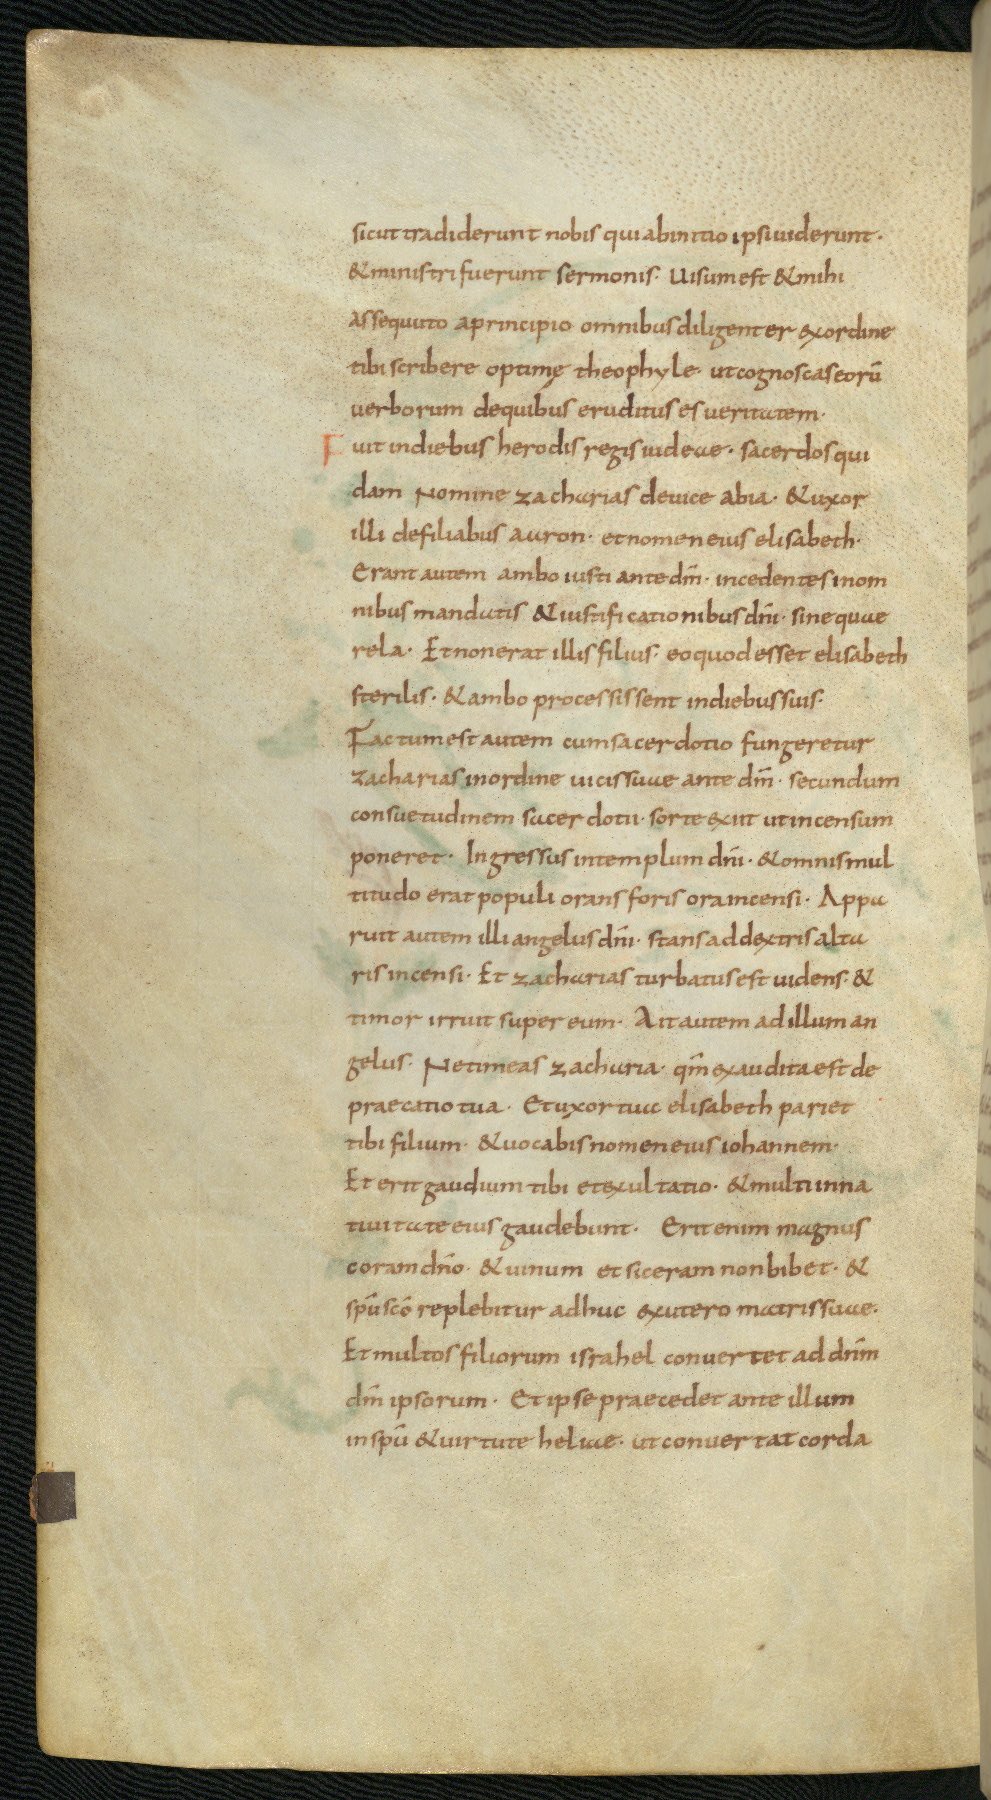 sicut tradiderunt nobis qui ab initio ipsi uiderunt·
& ministri fuerunt sermonis· Uisum est & mihi
assequuto a principio omnibus diligenter ex ordine
tibi scribere optimę theophyle· ut cognoscas eorū
uerborum de quibus eruditus es ueritatem·
Fuit in diebus herodis regis iudeae· sacerdos qui
dam Nomine zacharias de uice abia· & uxor
illi de filiabus aaron· et nomen eius elisabeth·
Erant autem ambo iusti ante dm̄· incedentes in om
nibus mandatis & iustificationibus dn̄i· sine quae
rela· Et non erat illis filius· eo quod esset elisabeth
sterilis· & ambo processissent in diebus suis·
Factum est autem cum sacerdotio fungeretur
zacharias in ordine uicis suae ante dm̄· secundum
consuetudinem sacerdotii· sorte exiit ut incensum
poneret· Ingressus in templum dn̄i· & omnis mul
titudo erat populi orans foris ora incensi· Appa
ruit autem illi angelus dn̄i· stans ad dextris alta
ris incensi· Et zacharias turbatus est uidens· &
timor irruit super eum· Ait autem ad illum an
gelus· Ne timeas zacharia· qm̄ exaudita est de
praecatio tua· Et uxor tua elisabeth pariet
tibi filium· & uocabis nomen eius iohannem·
Et erit gaudium tibi et exultatio· & multi in na
tiuitate eius gaudebunt· Erit enim magnus
coram dn̄o· & uinum et siceram non bibet· &
spū scō replebitur adhuc ex utero matris suae·
Et multos filiorum israhel conuertet ad dn̄m
dm̄ ipsorum· Et ipse praecedet ante illum
in spū & uirtute heliae· ut conuertat corda